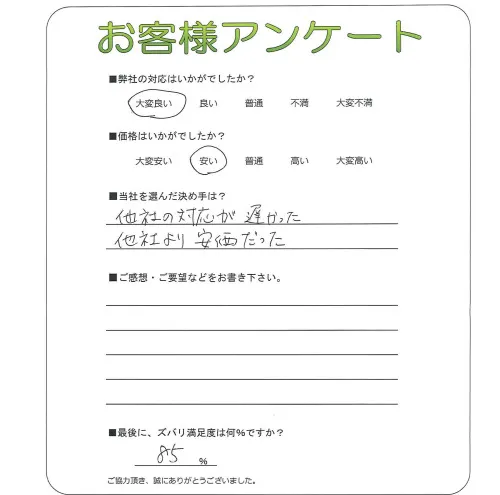 お客様アンケート
■弊社の対応はいかがでしたか？
大変良い 良い 普通 不満 大変不満
■価格はいかがでしたか？
大変安い 安い 普通 高い 大変高い
■当社を選んだ決め手は？
他社の対応が遅かった
他社より安価だった
■ご感想・ご要望などをお書き下さい。
■最後に、ズバリ満足度は何％ですか？
85 %
ご協力頂き、誠にありがとうございました。